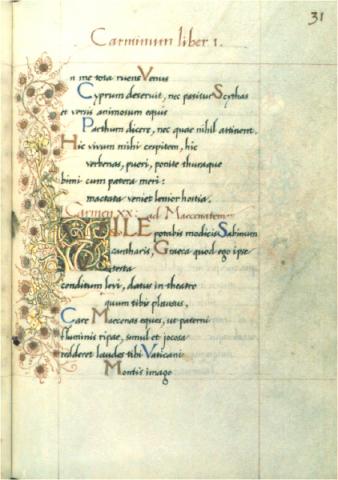 31
Carminum liber 1.
n me tota ruens Venus
Cyprum deseruit, nec patitur Scythas
et versis animosum equis
Parthum dicere, nec quae nihil attinent.
Hic vivum mihi cespitem, hic
verbenas, pueri, ponite thuraque
bimi cum patera meri:
mactata veniet lenior hostia.
Carmen xx: ad Maecenatem
VILE potabis modicis Sabinum
cantharis, Graeca quod ego ipse
testa
conditum levi, datus in theatro
quum tibi plausus,
Care Maecenas eques, ut paterni
fluminis ripae, simul et jocosa
redderet laudes tibi Vaticani
Montis imago